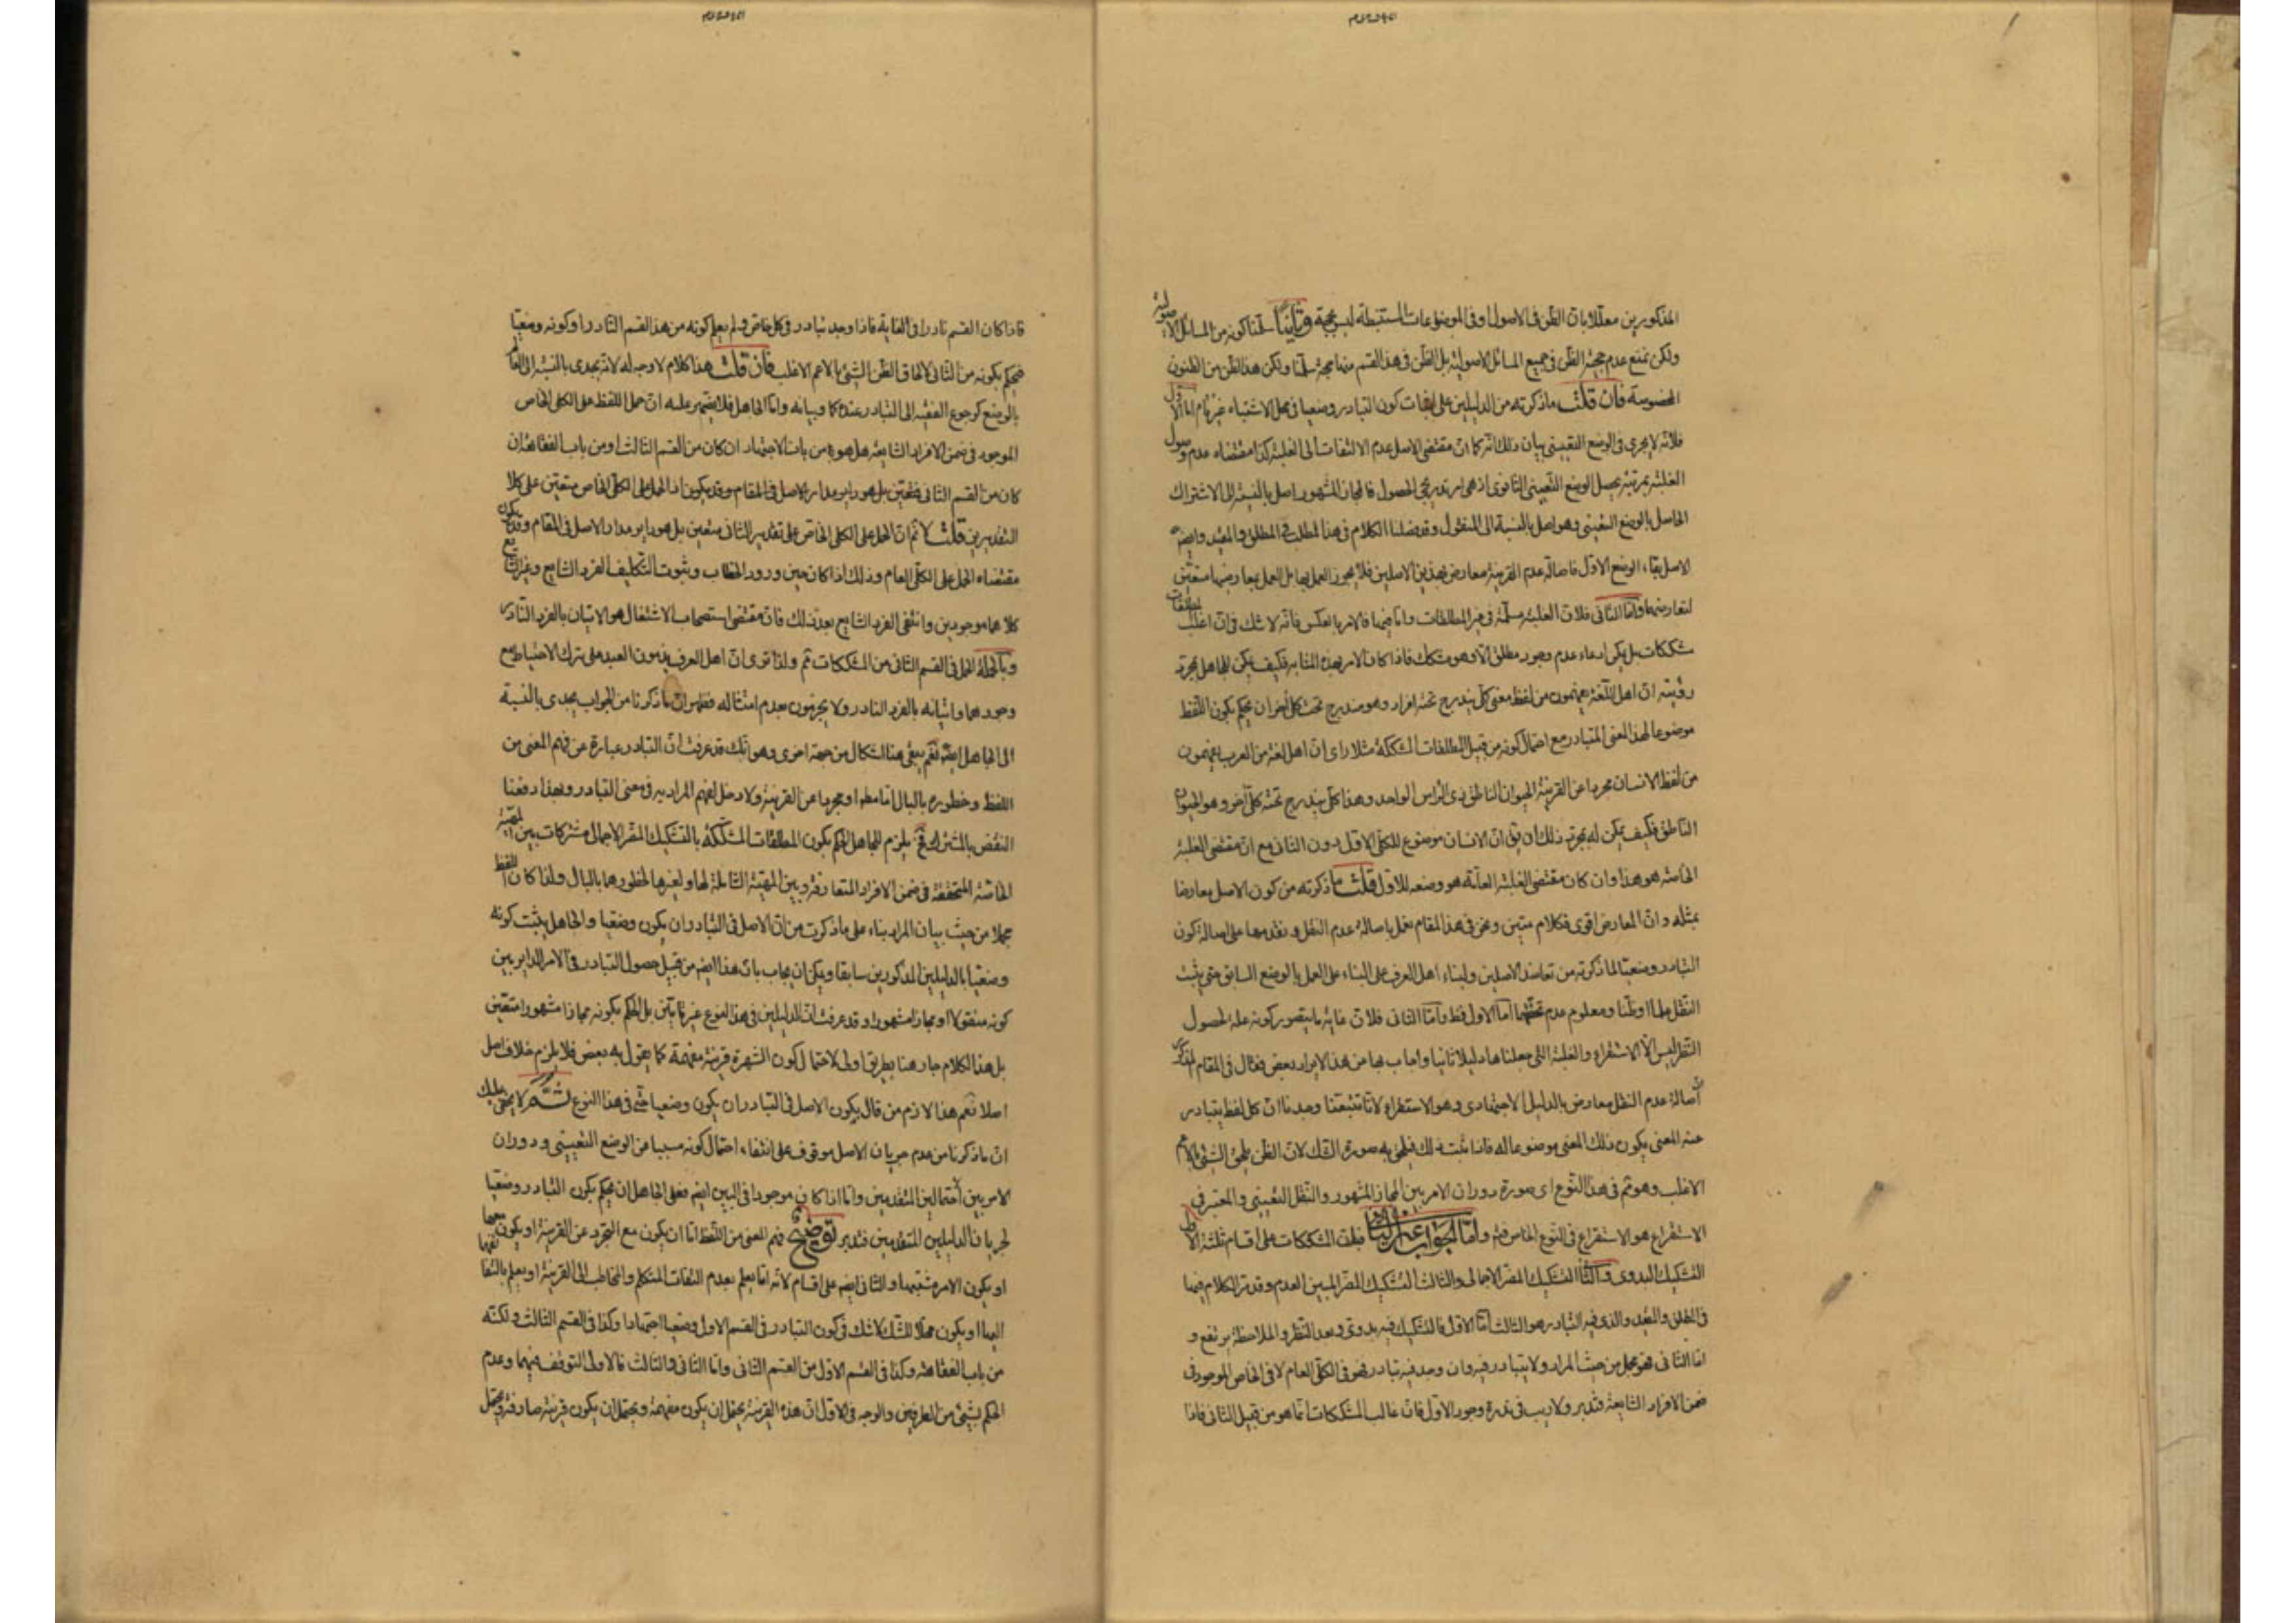 المذكورين معللا بان الظن فى الاصول او فى الموضوعات المستنبطة ليس بحجة وثانيا سلمنا كونه من المسائل الاصولية
ولكن نمنع عدم حجية الظن فى جميع المسائل الاصولية بل الظن فى هذا القسم منها حجة سلمنا ولكن هذا الظن من الظنون
المخصوصة فان قلت ما ذكرته من الدليلين على اثبات كون التبادر وضعيا فى محل الاشتباه غير تام اما الاول
فلانه لا يجرى فى الوضع التعينى بيان ذلك انه كما ان مقتضى الاصل عدم الالتفات الى الغلبة كذا مقتضاه عدم وصول
الغلبة بمرتبة يحصل الوضع التعينى الثانوى اذ هى امر تدريجى الحصول فالمجاز المشهور اصل بالنسبة الى الاشتراك
الحاصل بالوضع التعينى وهو اصل بالنسبة الى المنقول وقد فصلنا الكلام فى هذا المطلب فى المطلق والمقيد وايضا
الاصل بقاء الوضع الاول فاصالة عدم القرينة معارض بهذين الاصلين فلا يجوز العمل بها بل العمل بمعارضها متعين
لتعارضهما واما الثانى فلان الغلبة مسلمة فى غير المطلقات واما فيها فالامر بالعكس فانه لا شك فى ان اغلب المطلقات
مشككات بل يمكن ادعاء عدم وجود مطلق الا وهو مشكك فاذا كان الامر بهذه المثابة فكيف يمكن للجاهل بمجرد
رؤيته ان اهل اللغة يفهمون من لفظ معنى كلى يندرج تحته افراد وهو مندرج تحت كلى اخر ان يحكم بكون اللفظ
موضوعا لهذا المعنى المتبادر مع احتمال كونه من قبيل المطلقات المشككة مثلا راى ان اهل لغة من العرب يفهمون
من لفظ الانسان مجردا عن القرينة الحيوان الناطق ذى الراس الواحد وهذا كلى يندرج تحته كلى اخر وهو الحيوان
الناطق فكيف يمكن له بمجرد ذلك ان يق ان الانسان موضوع للكلى الاول دون الثانى مع ان مقتضى الغلبة
الخاصة هو هذا وان كان مقتضى الغلبة العامة هو وضعه للاول قلت ما ذكرته من كون الاصل معارضا
بمثله وان المعارض اقوى فكلام متين ونحن فى هذا المقام نعمل باصالة عدم النقل ونقدمها على اصالة كون
التبادر وضعيا لما ذكرته من تعاضد الاصلين ولبناء اهل العرف على البناء على العمل بالوضع السابق متى يثبت
النقل علما او ظنا ومعلوم عدم تحققهما اما الاول فظ واما الثانى فلان غاية ما يتصور كونه علة لحصول
الظن ليس الا الاستقراء والغلبة التى جعلناها دليلا ثانيا واجاب بها من هذا الايراد بعض فقال فى المقام المذكور
ان اصالة عدم النقل معارض بالدليل الاجتهادى وهو الاستقراء لانا تتبعنا وجدنا ان كل لفظ يتبادر
منه المعنى يكون ذلك المعنى موضوعا له فاذا ثبت ذلك فيلحق به صورة الشك لان الظن يلحق الشئ بالاعم
الاغلب وهو تم فى هذا النوع اى صورة دوران الامر بين المجاز المشهور والنقل التعينى والمعتبر فى
الاستقراء هو الاستقراء فى النوع الخاص فته واما الجواب عن الثانى فلان المشككات على اقسام ثلثة الاول
التشكيك البدوى والثانى التشكيك المضر الاجمالى والثالث التشكيك المضر المبين العدم وقد مر الكلام فيها
فى المطلق والمقيد والذى فيه التبادر هو الثالث اما الاول فالتشكيك فيه بدوى وبعد النظر والملاحظة يرتفع و
اما الثانى فهو مجمل من حيث المراد ولا يتبادر فيه وان وجد فيه تبادر فهو فى الكلى العام لا فى الخاص الموجود فى
ضمن الافراد الشايعة فتدبر ولا ريب فى ندرة وجود الاول فان غالب المشككات انما هو من قبيل الثانى فاذا
فاذا كان القسم نادرا فى الغاية فاذا وجد تبادر فى كلى خاص ولم يعلم كونه من هذا القسم النادر او كونه وضعيا
فيحكم بكونه من الثانى لالحاق الظن الشئ بالاعم الاغلب فان قلت هذا كلام لا وجه له لانه يجدى بالنسبة الى العالم
بالوضع كرجوع الفقيه الى التبادر عنده كما وبيانه واما الجاهل فلا يضير عليه ان حمل اللفظ على الكلى الخاص
الموجود فى ضمن الافراد الشايعة هل هو من باب الاجتهاد ان كان من القسم الثالث او من باب الفقاهة ان
كان من القسم الثانى فتعين بل هو داير مدار الاصل فى المقام وقد يكون اذ الحمل على الكلى الخاص متعين على كلا
التقديرين قلت لا نم ان الحمل على الكلى الخاص على تقدير الثانى متعين بل هو داير مدار الاصل فى المقام وقد يكون
مقتضاه الحمل على الكلى العام وذلك اذا كان حين ورود الخطاب وثبوت التكليف الفرد الشايع وغير الشايع
كلاهما موجودين وانتفى الفرد الشايع بعد ذلك فان مقتضى استصحاب الاشتغال هو الاتيان بالفرد النادر
وبالجملة الحمل فى القسم الثانى من المشككات تم ولذا ترى ان اهل العرف يذمون العبد على ترك الاحتياط مع
وجودهما واتيانه بالفرد النادر ولا يجزمون بعدم امتثاله فظهر ان ما ذكرنا من الجواب يجدى بالنسبة
الى الجاهل ايضا نعم يبقى هنا اشكال من جهة اخرى وهو انك قد عرفت ان التبادر عبارة عن فهم المعنى من
اللفظ وخطوره بالبال اما مطلقا او مجردا عن القرينة ولا دخل لفهم المراد به فى معنى التبادر وبهذا دفعنا
النقض بالمشترك فح يلزم للجاهل الحكم بكون المطلقات المشككة بالتشكيك المضر الاجمالى مشتركات بين المهية
الخاصة المتحققة فى ضمن الافراد المتعارفة وبين المهية الشاملة لها ولغيرها لخطورهما بالبال ولذا كان اللفظ
مجملا من حيث بيان المراد بناء على ما ذكرت من ان الاصل فى التبادر ان يكون وضعيا والجاهل يثبت كونه
وضعيا بالدليلين المذكورين سابقا ويمكن ان يجاب بان هذا ايضا من قبيل حصول التبادر فى الامر الداير بين
كونه منقولا او مجازا مشهورا وقد عرفت ان الدليلين فى هذا النوع غير تامين بل الحكم بكونه مجازا مشهورا متعين
بل هذا الكلام جار هنا بطريق اولى لاحتمال كون الشهرة قرينة مفهمة كما يقول به بعض فلا يلزم خلاف اصل
اصلا نعم هذا لازم من قال بكون الاصل فى التبادر ان يكون وضعيا حتى فى هذا النوع ثم لا يخفى عليك
ان ما ذكرنا من عدم جريان الاصل موقوف على انتفاء احتمال كونه مسببا من الوضع التعيينى ودوران
الامر بين احتمالين المتقدمين واما اذا كان موجودا فى البين ايضا فعلى الجاهل ان يحكم بكون التبادر وضعيا
لجريان الدليلين المتقدمين فتدبر توضيح فهم المعنى من اللفظ اما ان يكون مع التجرد عن القرينة او يكون معها
او يكون الامر مشتبها والثانى ايضا على اقسام لانه اما يعلم بعدم التفات المتكلم والمخاطب الى القرينة او يعلم بالتفاتهما
اليها او يكون محلا للشك لا شك فى كون التبادر فى القسم الاول وضعيا اجتهادا وكذا فى القسم الثالث ولكنه
من باب الفقاهة وكذا فى القسم الاول من القسم الثانى واما الثانى والثالث فالاولى التوقف فيهما وعدم
الحكم بشئ من الطرفين والوجه فى الاول ان هذه القرينة يحتمل ان يكون مفهمة ويحتمل ان يكون قرينة صارفة ويحتمل